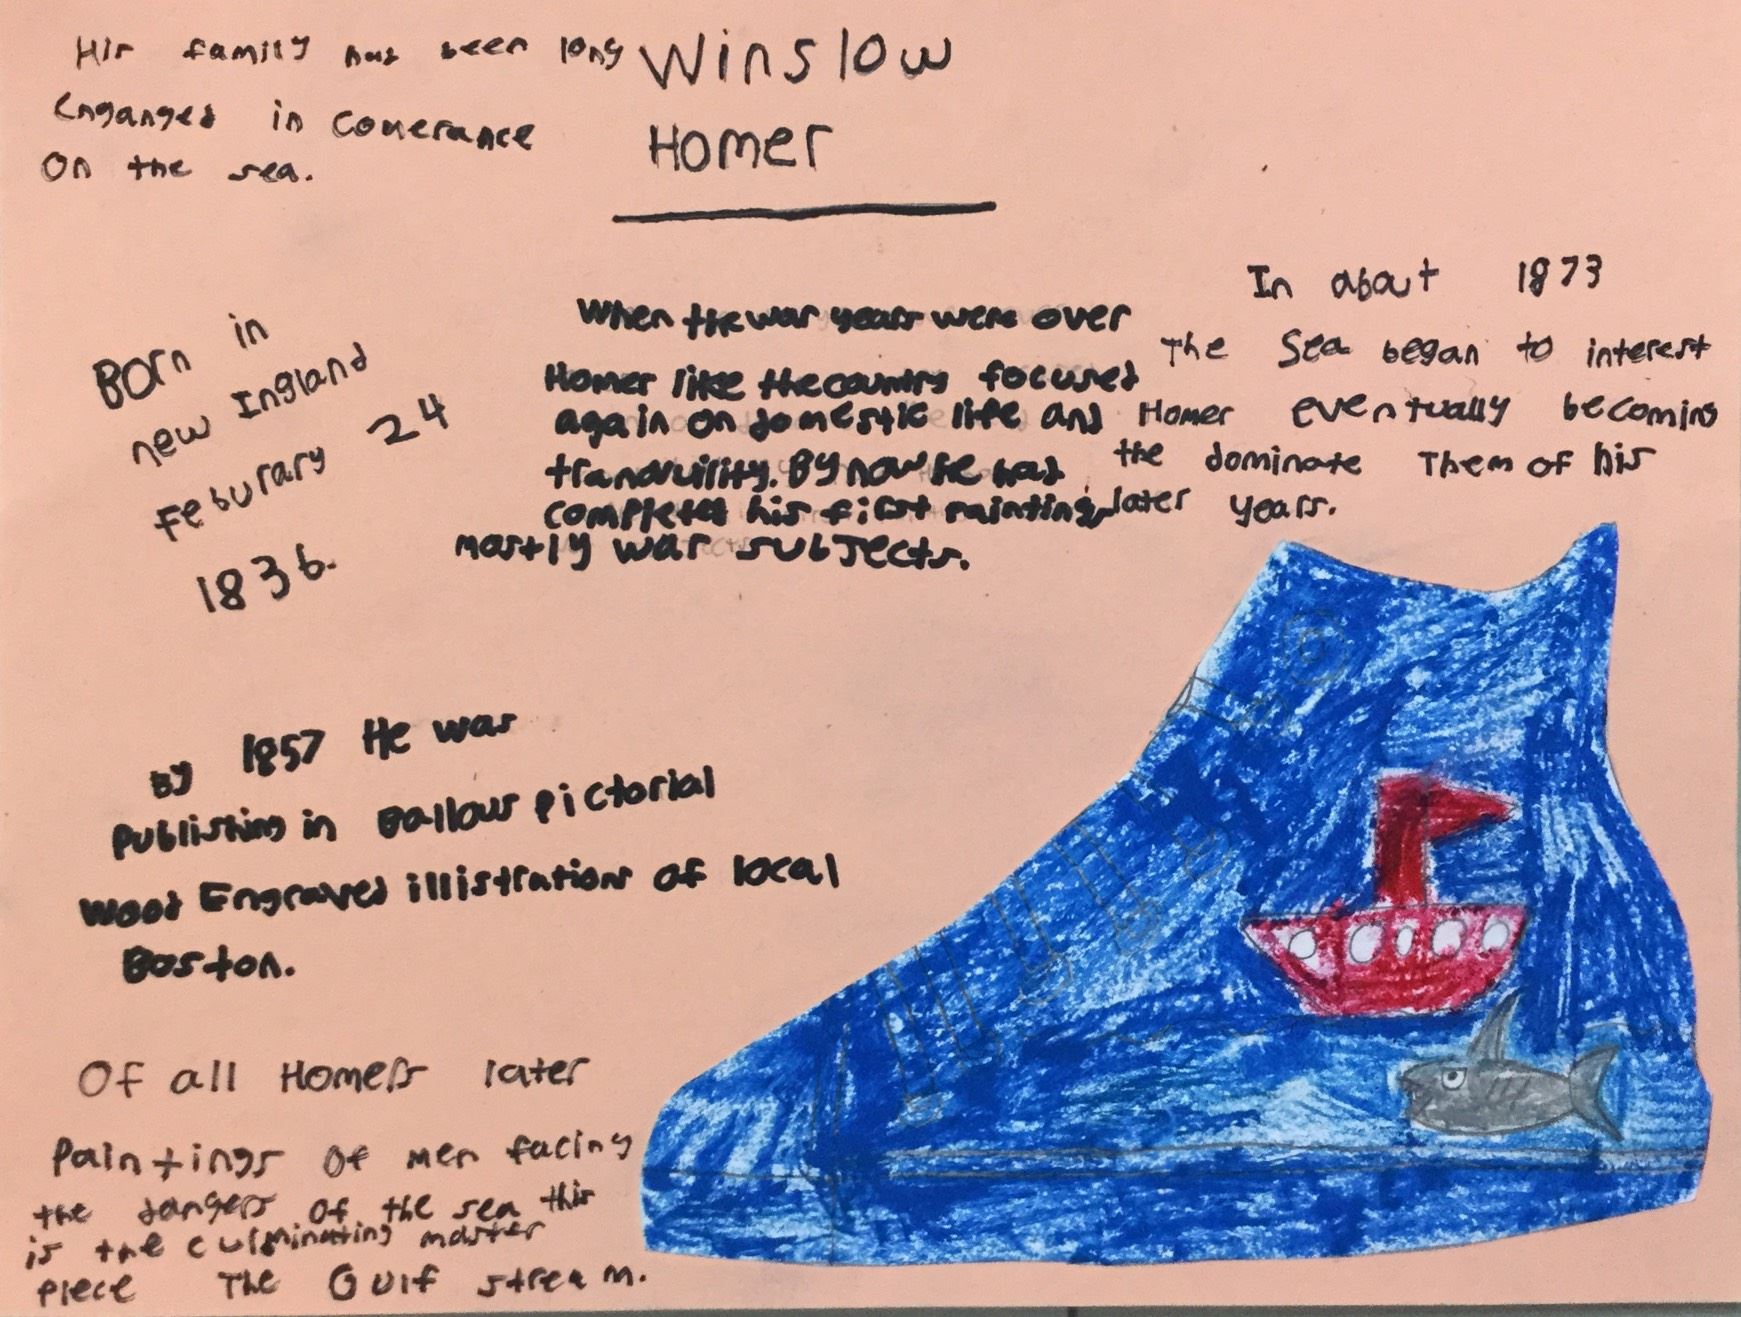 Winslow
Homer
His family has been long
Enganged in Comerance
On the sea.
Born in
new Ingland
Feburary 24
1836.
When the war years were over
Homer like the country focused
again on domestic life and
tranquility. By now he had
completed his first painting,
mostly war subjects.
In about 1873
The Sea began to interest
Homer eventually becoming
the dominate Them of his
later years.
By 1857 He was
Publishing in Ballows pictorial
Wood Engraved illistrations of local
Boston.
Of all Homers later
Paintings of men facing
the dangers of the sea this
is the culminating master
piece The Gulf stream.